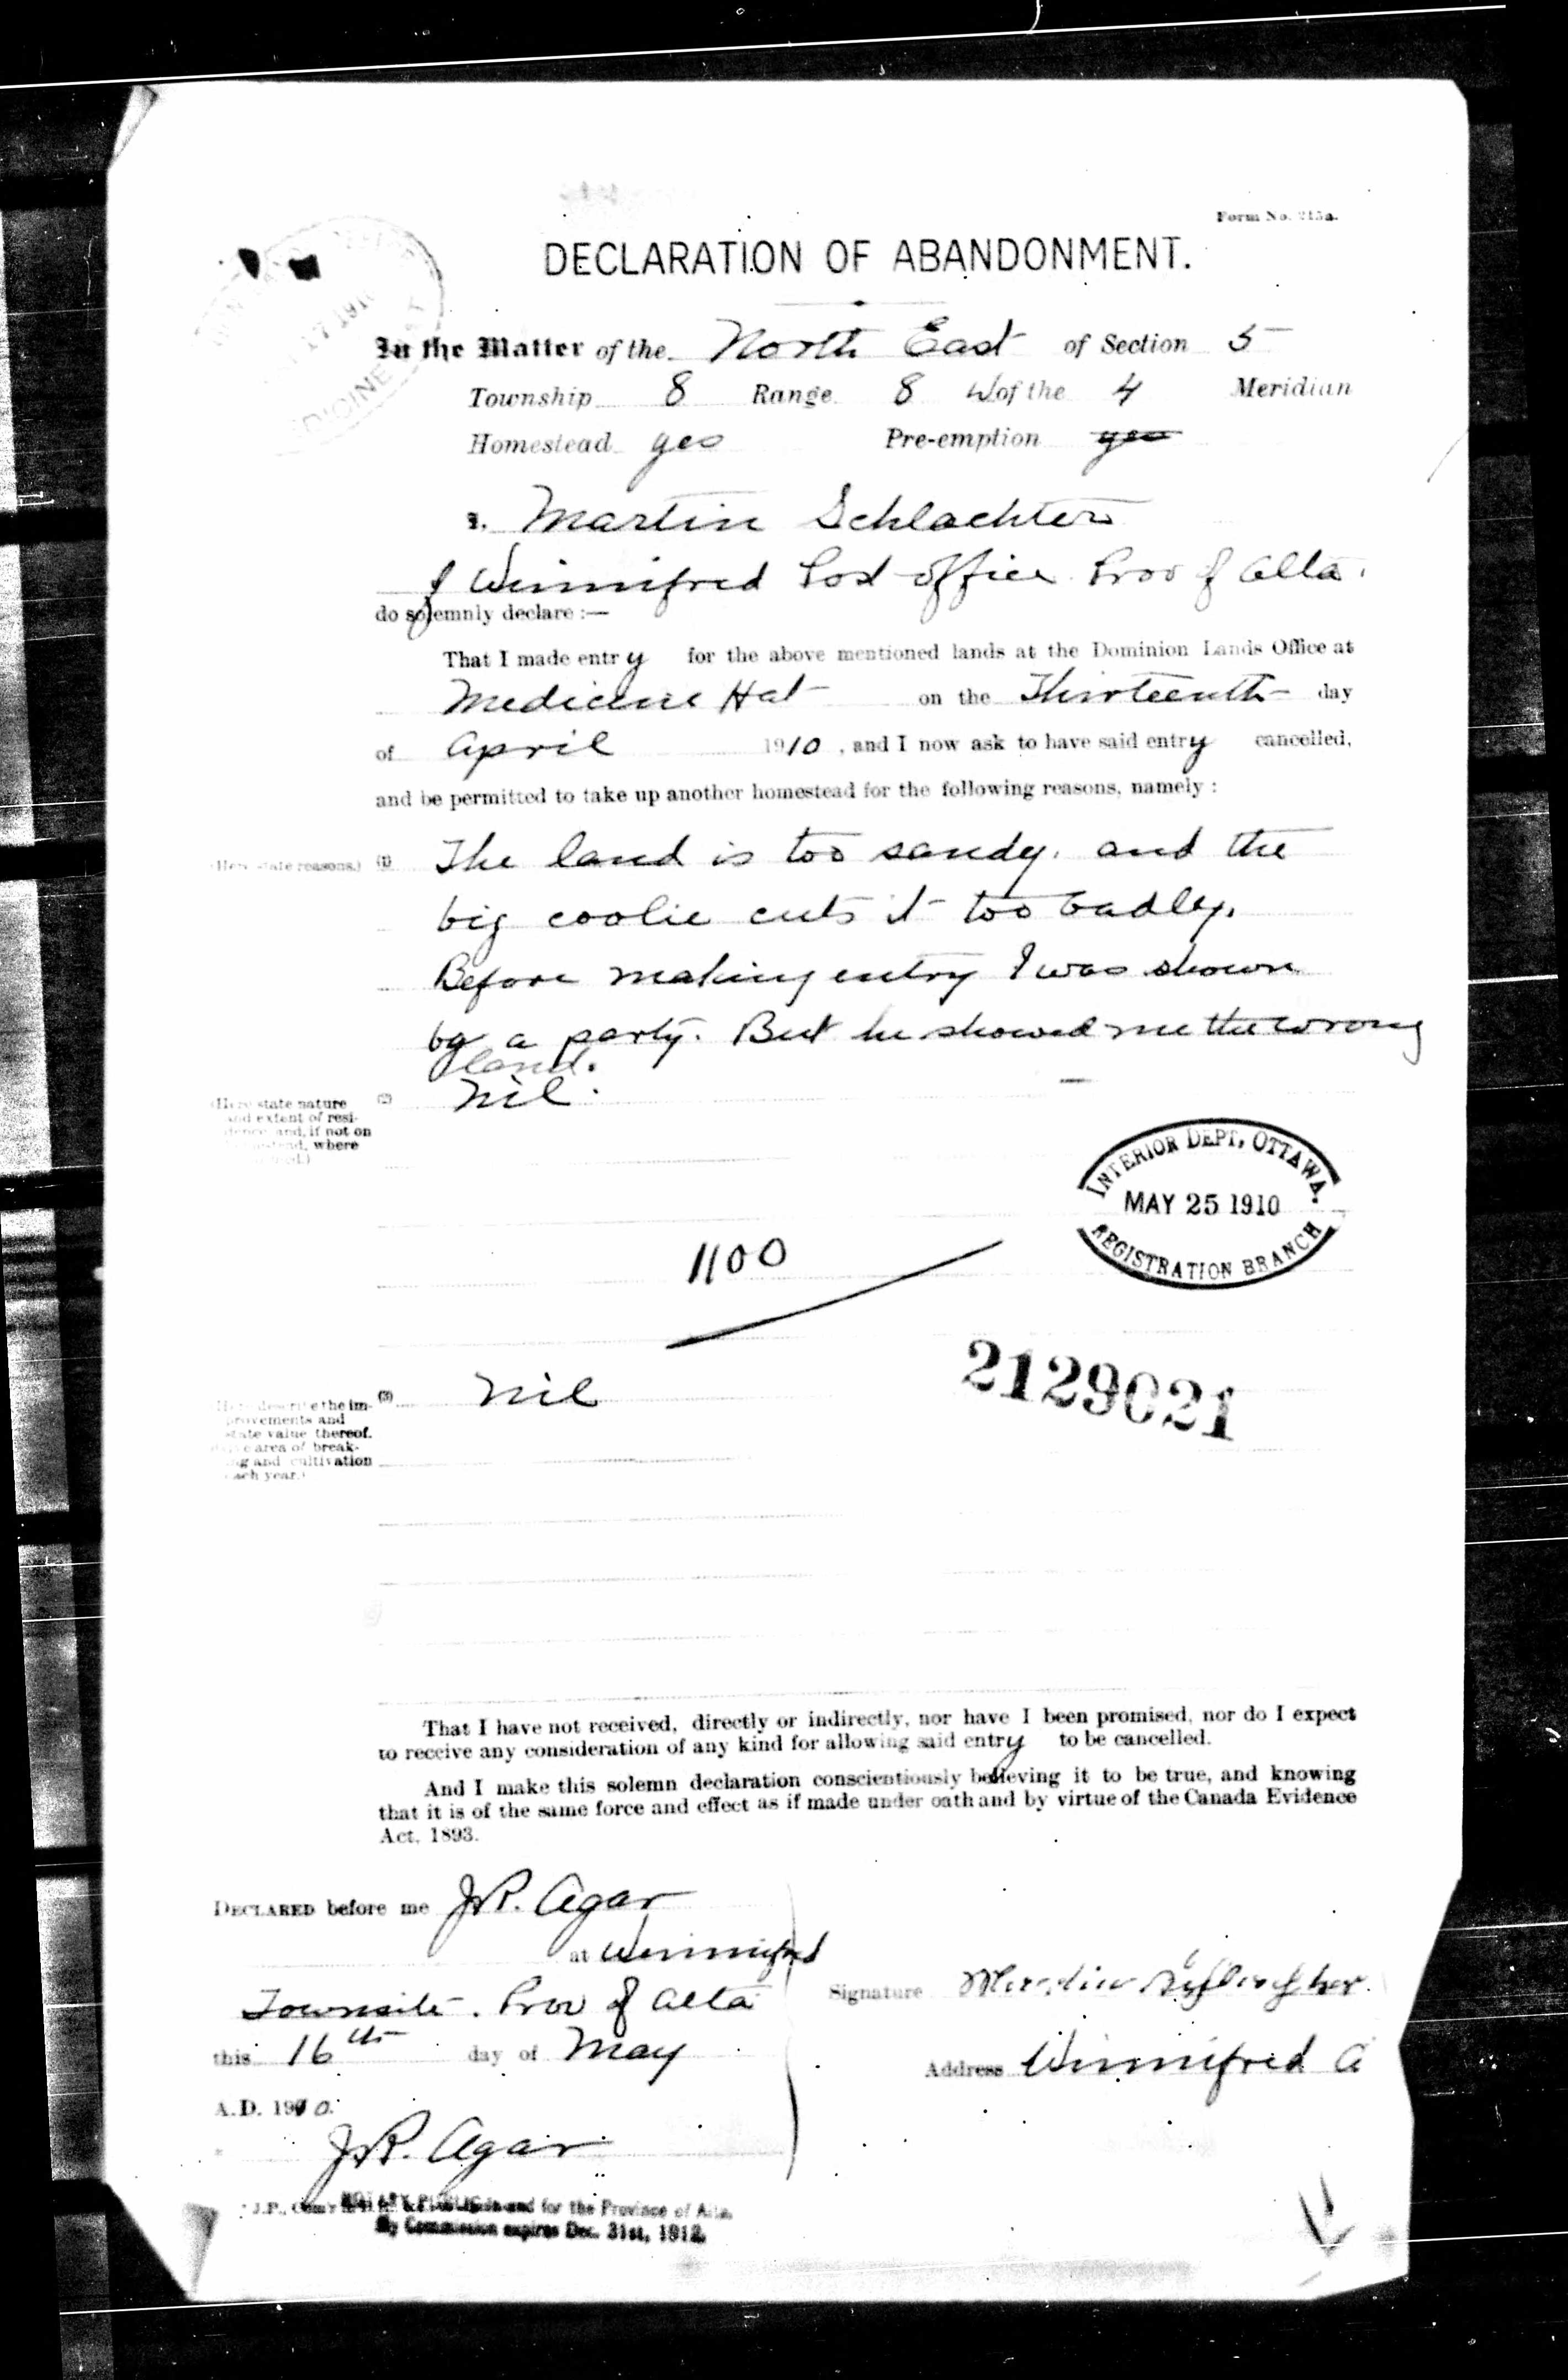 Form No. 215a.
DECLARATION OF ABANDONMENT.
17 1910
In the Matter of the North East of Section 5
Township 8 Range 8 W of the 4 Meridian
Homestead yes Pre-emption yes
I, Martin Schlachter
of Winnifred Post office Prov of Alta.
do solemnly declare :—
That I made entry for the above mentioned lands at the Dominion Lands Office at
Medicine Hat on the Thirteenth day
of April 1910, and I now ask to have said entry cancelled,
and be permitted to take up another homestead for the following reasons, namely :
(Here state reasons.) (1) The land is too sandy. and the
big coolie cuts it too badly.
Before making entry I was shown
by a party. But he showed me the wrong
land.
(Here state nature (2) Nil.
and extent of resi-
dence and, if not on
homestead, where
INTERIOR DEPT, OTTAWA.
MAY 25 1910
REGISTRATION BRANCH
1100
2129021
(Here describe the im- (3) Nil
provements and
state value thereof.
Give area of break-
ing and cultivation
each year.)
That I have not received, directly or indirectly, nor have I been promised, nor do I expect
to receive any consideration of any kind for allowing said entry to be cancelled.
And I make this solemn declaration conscientiously believing it to be true, and knowing
that it is of the same force and effect as if made under oath and by virtue of the Canada Evidence
Act, 1893.
DECLARED before me J.R. Agar
at Winnifred
Townsite. Prov of Alta
this 16th day of May
A.D. 1910.
J.R. Agar
Signature Martin Schlachter
Address Winnifred A
NOTARY PUBLIC in and for the Province of Alta.
My Commission expires Dec. 31st, 1912.